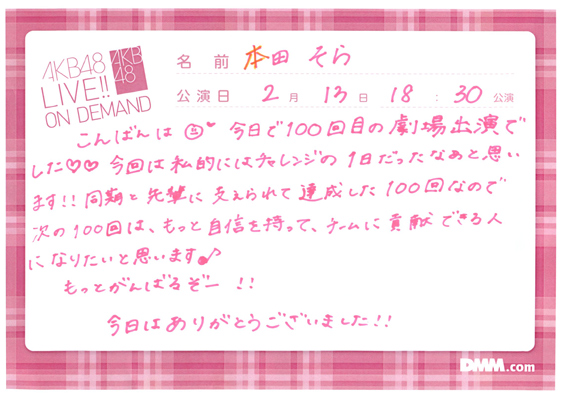 AKB48
LIVE!!
ON DEMAND
AKB
48
名前 本田 そら
公演日 2月 13日 18:30 公演
こんばんは☺♥ 今日で100回目の劇場出演で
した♡♡ 今回は私的にはチャレンジの1日だったなあと思い
ます!! 同期と先輩に支えられて達成した100回なので
次の100回は、もっと自信を持って、チームに貢献できる人
になりたいと思います♪
もっとがんばるぞー!!
今日はありがとうございました!!
DMM.com